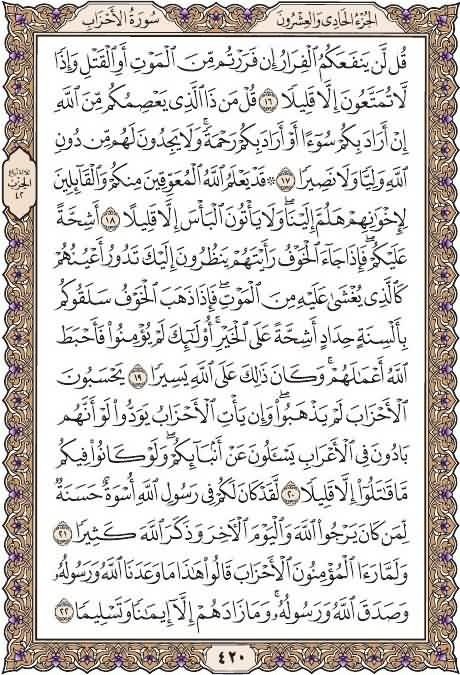 الجزء الحادي والعشرون
سورة الأحزاب
قُل لَّن يَنفَعَكُمُ ٱلْفِرَارُ إِن فَرَرْتُم مِّنَ ٱلْمَوْتِ أَوِ ٱلْقَتْلِ وَإِذًا
لَّا تُمَتَّعُونَ إِلَّا قَلِيلًا ١٦ قُلْ مَن ذَا ٱلَّذِى يَعْصِمُكُم مِّنَ ٱللَّهِ
إِنْ أَرَادَ بِكُمْ سُوٓءًا أَوْ أَرَادَ بِكُمْ رَحْمَةً ۚ وَلَا يَجِدُونَ لَهُم مِّن دُونِ
ٱللَّهِ وَلِيًّا وَلَا نَصِيرًا ١٧ ۞ قَدْ يَعْلَمُ ٱللَّهُ ٱلْمُعَوِّقِينَ مِنكُمْ وَٱلْقَآئِلِينَ
لِإِخْوَٰنِهِمْ هَلُمَّ إِلَيْنَا ۖ وَلَا يَأْتُونَ ٱلْبَأْسَ إِلَّا قَلِيلًا ١٨ أَشِحَّةً
عَلَيْكُمْ ۖ فَإِذَا جَآءَ ٱلْخَوْفُ رَأَيْتَهُمْ يَنظُرُونَ إِلَيْكَ تَدُورُ أَعْيُنُهُمْ
كَٱلَّذِى يُغْشَىٰ عَلَيْهِ مِنَ ٱلْمَوْتِ ۖ فَإِذَا ذَهَبَ ٱلْخَوْفُ سَلَقُوكُم
بِأَلْسِنَةٍ حِدَادٍ أَشِحَّةً عَلَى ٱلْخَيْرِ ۚ أُو۟لَٰٓئِكَ لَمْ يُؤْمِنُوا۟ فَأَحْبَطَ
ٱللَّهُ أَعْمَٰلَهُمْ ۚ وَكَانَ ذَٰلِكَ عَلَى ٱللَّهِ يَسِيرًا ١٩ يَحْسَبُونَ
ٱلْأَحْزَابَ لَمْ يَذْهَبُوا۟ ۖ وَإِن يَأْتِ ٱلْأَحْزَابُ يَوَدُّوا۟ لَوْ أَنَّهُم
بَادُونَ فِى ٱلْأَعْرَابِ يَسْـَٔلُونَ عَنْ أَنۢبَآئِكُمْ ۖ وَلَوْ كَانُوا۟ فِيكُم
مَّا قَٰتَلُوٓا۟ إِلَّا قَلِيلًا ٢٠ لَّقَدْ كَانَ لَكُمْ فِى رَسُولِ ٱللَّهِ أُسْوَةٌ حَسَنَةٌ
لِّمَن كَانَ يَرْجُوا۟ ٱللَّهَ وَٱلْيَوْمَ ٱلْءَاخِرَ وَذَكَرَ ٱللَّهَ كَثِيرًا ٢١
وَلَمَّا رَءَا ٱلْمُؤْمِنُونَ ٱلْأَحْزَابَ قَالُوا۟ هَٰذَا مَا وَعَدَنَا ٱللَّهُ وَرَسُولُهُۥ
وَصَدَقَ ٱللَّهُ وَرَسُولُهُۥ ۚ وَمَا زَادَهُمْ إِلَّآ إِيمَٰنًا وَتَسْلِيمًا ٢٢
ثلاثة أرباع
الحزب
٤٢
٤٢٠